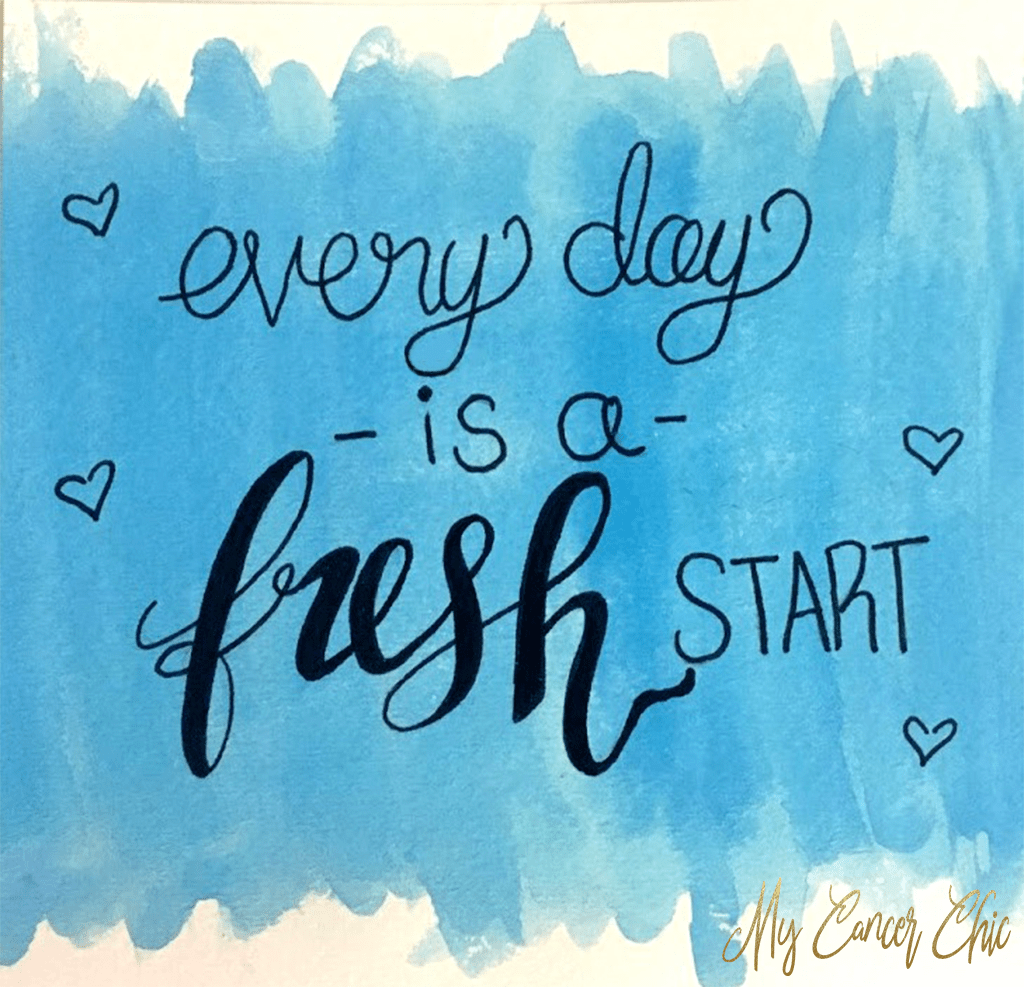 every day
- is a -
fresh START
My Cancer Chic